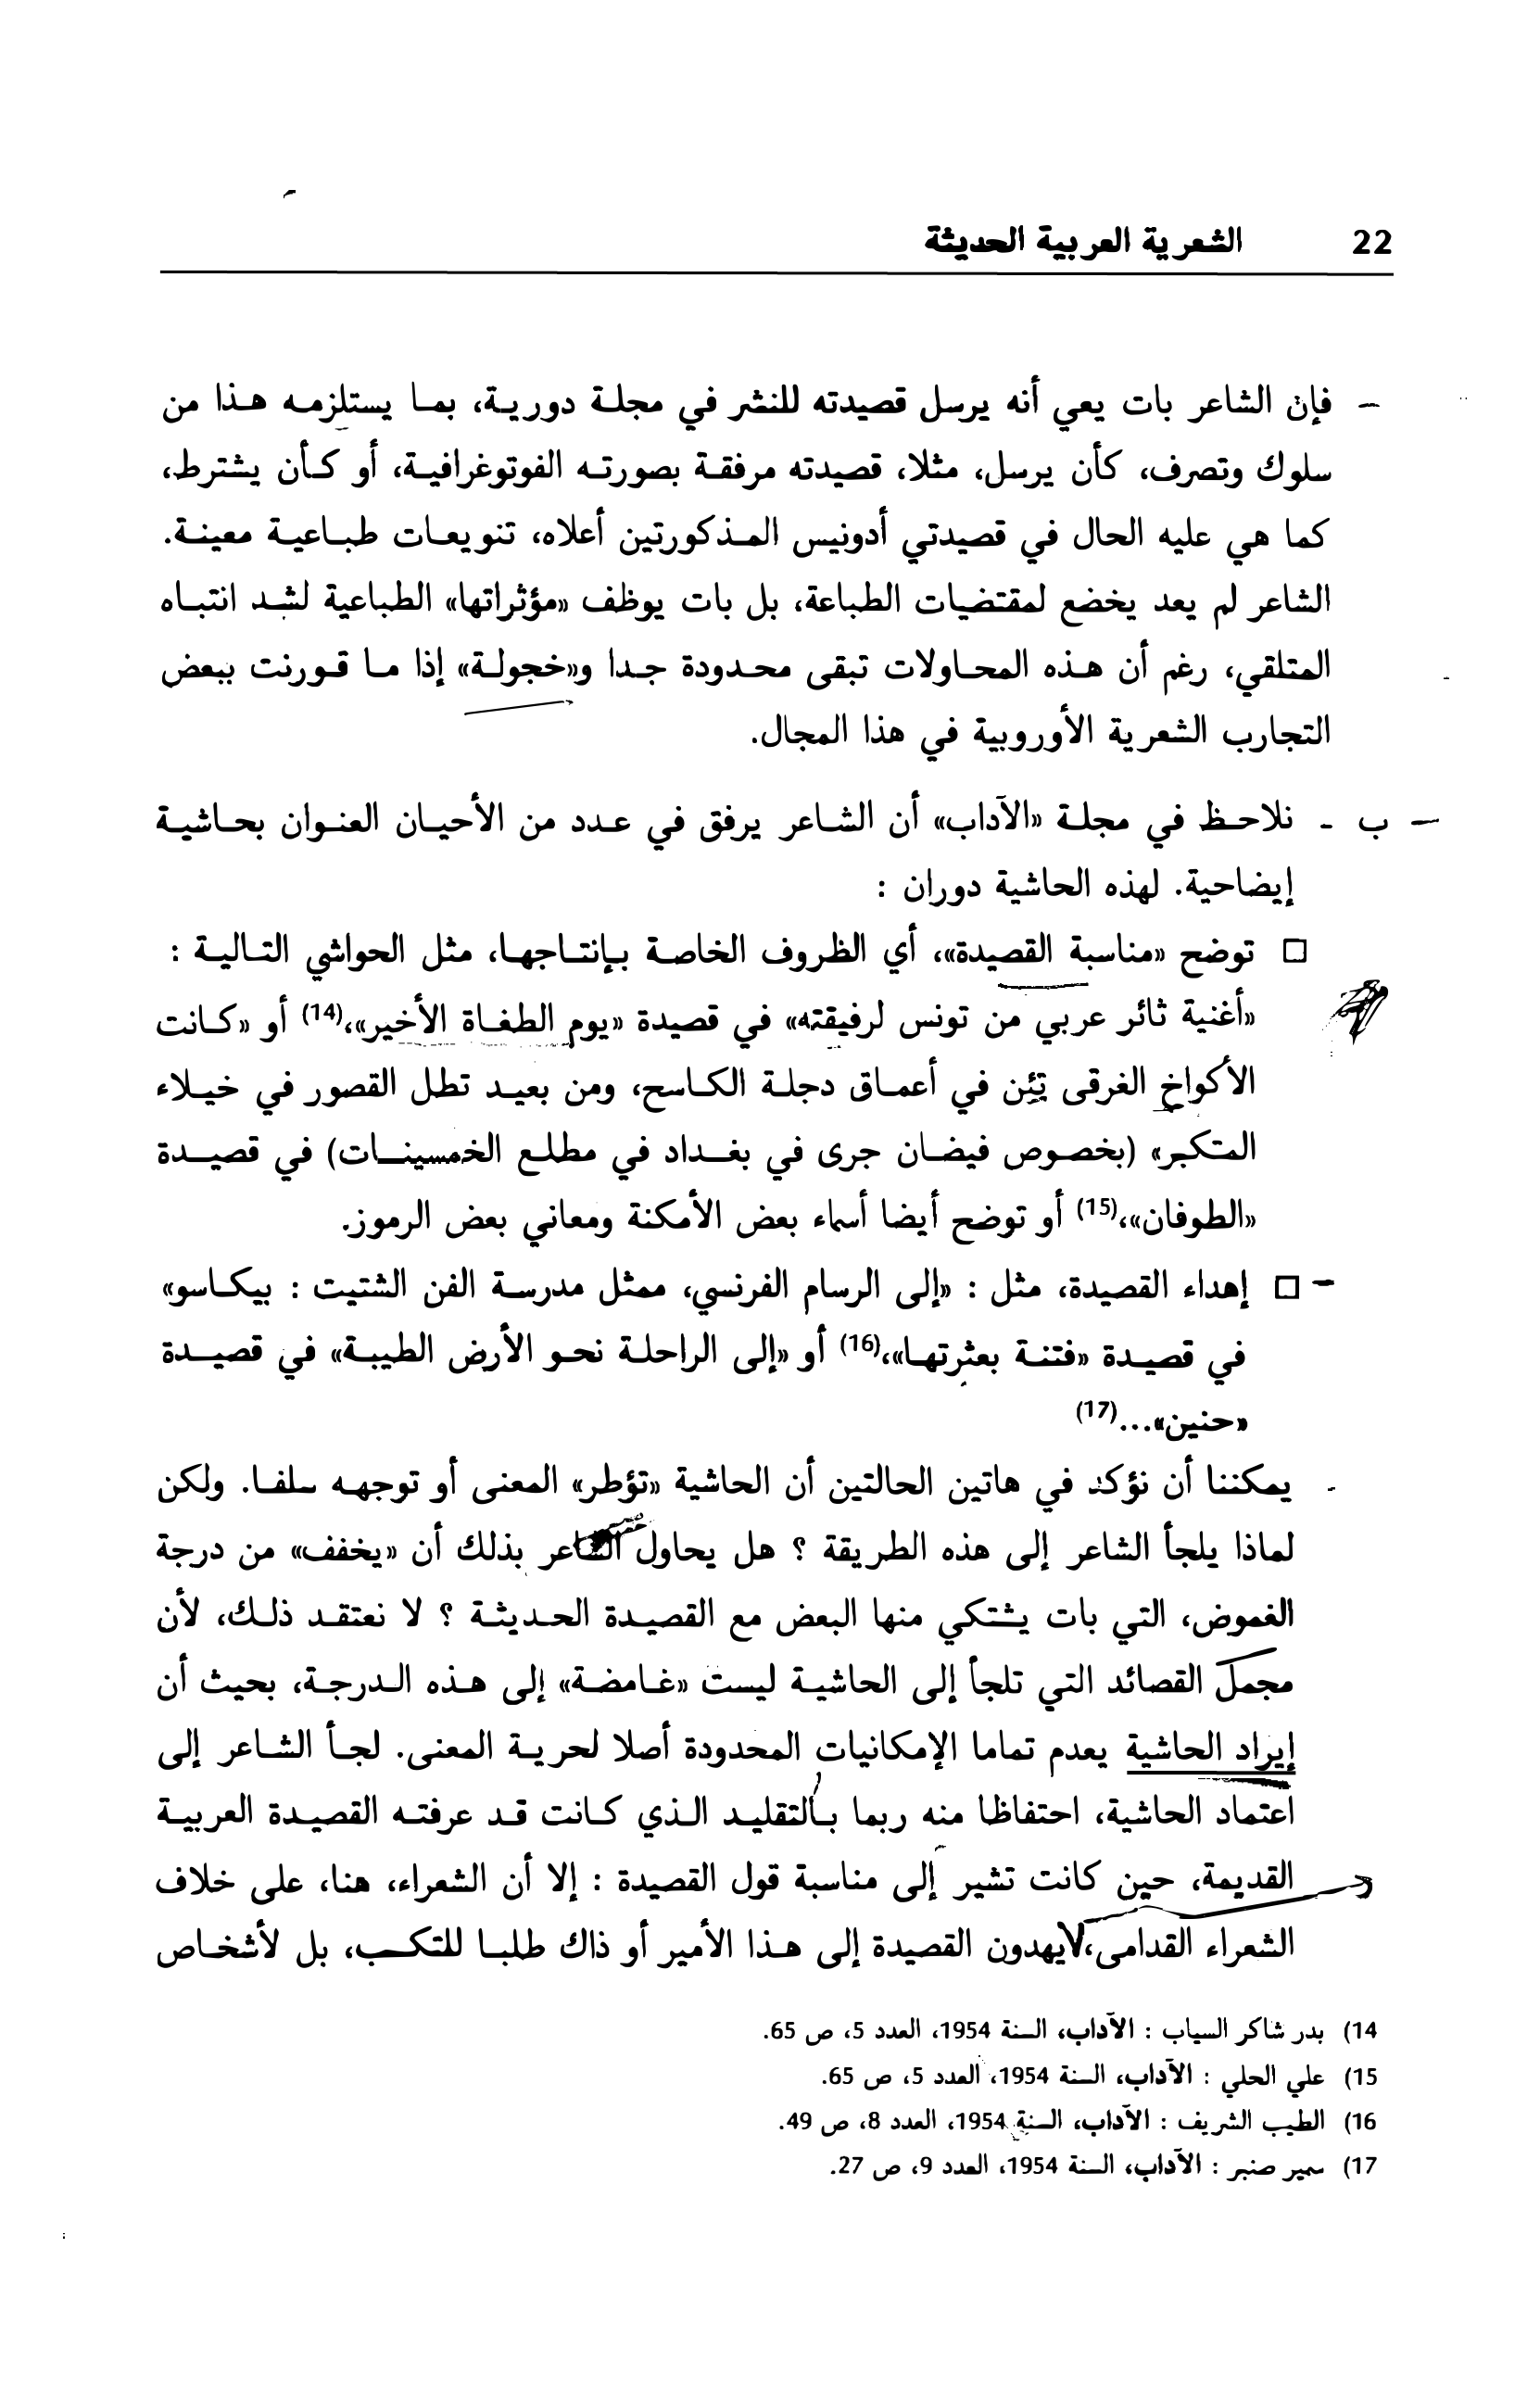 22 الشعرية العربية الحديثة
فإن الشاعر بات يعي أنه يرسل قصيدته للنشر في مجلة دورية، بما يستلزمه هذا من
سلوك وتصرف، كأن يرسل، مثلا، قصيدته مرفقة بصورته الفوتوغرافية، أو كأن يشترط،
كما هي عليه الحال في قصيدتي أدونيس المذكورتين أعلاه، تنويعات طباعية معينة.
الشاعر لم يعد يخضع لمقتضيات الطباعة، بل بات يوظف «مؤثراتها» الطباعية لشد انتباه
المتلقي، رغم أن هذه المحاولات تبقى محدودة جدا و«خجولة» إذا ما قورنت ببعض
التجارب الشعرية الأوروبية في هذا المجال.
ب - نلاحظ في مجلة «الآداب» أن الشاعر يرفق في عدد من الأحيان العنوان بحاشية
إيضاحية. لهذه الحاشية دوران :
□ توضح «مناسبة القصيدة»، أي الظروف الخاصة بإنتاجها، مثل الحواشي التالية :
«أغنية ثائر عربي من تونس لرفيقته» في قصيدة «يوم الطغاة الأخير»،(14) أو «كانت
الأكواخ الغرقى تئن في أعماق دجلة الكاسح، ومن بعيد تطل القصور في خيلاء
المتكبر» (بخصوص فيضان جرى في بغداد في مطلع الخمسينات) في قصيدة
«الطوفان»،(15) أو توضح أيضا أسماء بعض الأمكنة ومعاني بعض الرموز.
□ إهداء القصيدة، مثل : «إلى الرسام الفرنسي، ممثل مدرسة الفن الشتيت : بيكاسو»
في قصيدة «فتنة بعثرتها»،(16) أو «إلى الراحلة نحو الأرض الطيبة» في قصيدة
«حنين»...(17)
يمكننا أن نؤكد في هاتين الحالتين أن الحاشية «تؤطر» المعنى أو توجهه سلفا. ولكن
لماذا يلجأ الشاعر إلى هذه الطريقة ؟ هل يحاول الشاعر بذلك أن «يخفف» من درجة
الغموض، التي بات يشتكي منها البعض مع القصيدة الحديثة ؟ لا نعتقد ذلك، لأن
مجمل القصائد التي تلجأ إلى الحاشية ليست «غامضة» إلى هذه الدرجة، بحيث أن
إيراد الحاشية يعدم تماما الإمكانيات المحدودة أصلا لحرية المعنى. لجأ الشاعر إلى
اعتماد الحاشية، احتفاظا منه ربما بالتقليد الذي كانت قد عرفته القصيدة العربية
القديمة، حين كانت تشير إلى مناسبة قول القصيدة : إلا أن الشعراء، هنا، على خلاف
الشعراء القدامى، لايهدون القصيدة إلى هذا الأمير أو ذاك طلبا للتكسب، بل لأشخاص
14) بدر شاكر السياب : الآداب، السنة 1954، العدد 5، ص 65.
15) علي الحلي : الآداب، السنة 1954، العدد 5، ص 65.
16) الطيب الشريف : الآداب، السنة 1954، العدد 8، ص 49.
17) سمير صنبر : الآداب، السنة 1954، العدد 9، ص 27.